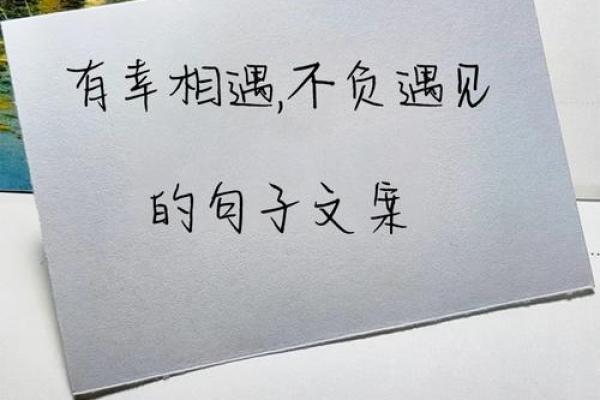 有幸相遇,不负遇见
的句子文案